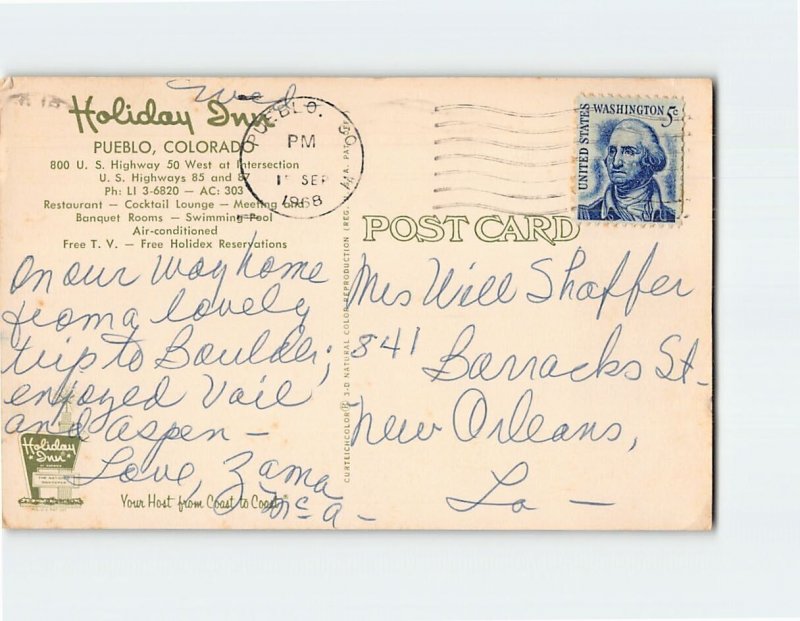 Wed
Holiday Inn
PUEBLO, COLORADO
800 U. S. Highway 50 West at Intersection
U. S. Highways 85 and 87
Ph: LI 3-6820 — AC: 303
Restaurant — Cocktail Lounge — Meeting and
Banquet Rooms — Swimming Pool
Air-conditioned
Free T. V. — Free Holidex Reservations
PUEBLO. CO
PM
SEP
1968
UNITED STATES
WASHINGTON 5c
POST CARD
On our way home
from a lovely
trip to Boulder;
enjoyed Vail
and Aspen —
Love, Zama
Mrs Will Shaffer
841
Barracks St.
New Orleans,
La —
CURTEICHCOLOR® 3-D NATURAL COLOR REPRODUCTION (REG. U.S.A. PAT. OFF.
Holiday
Inn
Your Host from Coast to Coast®